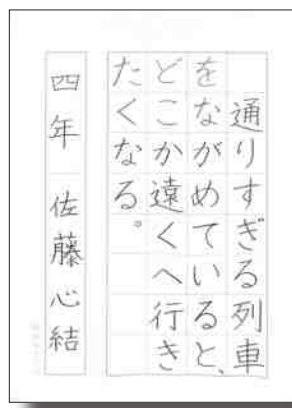 通りすぎる列車
をながめていると、
どこか遠くへ行き
たくなる。
四年 佐藤心結